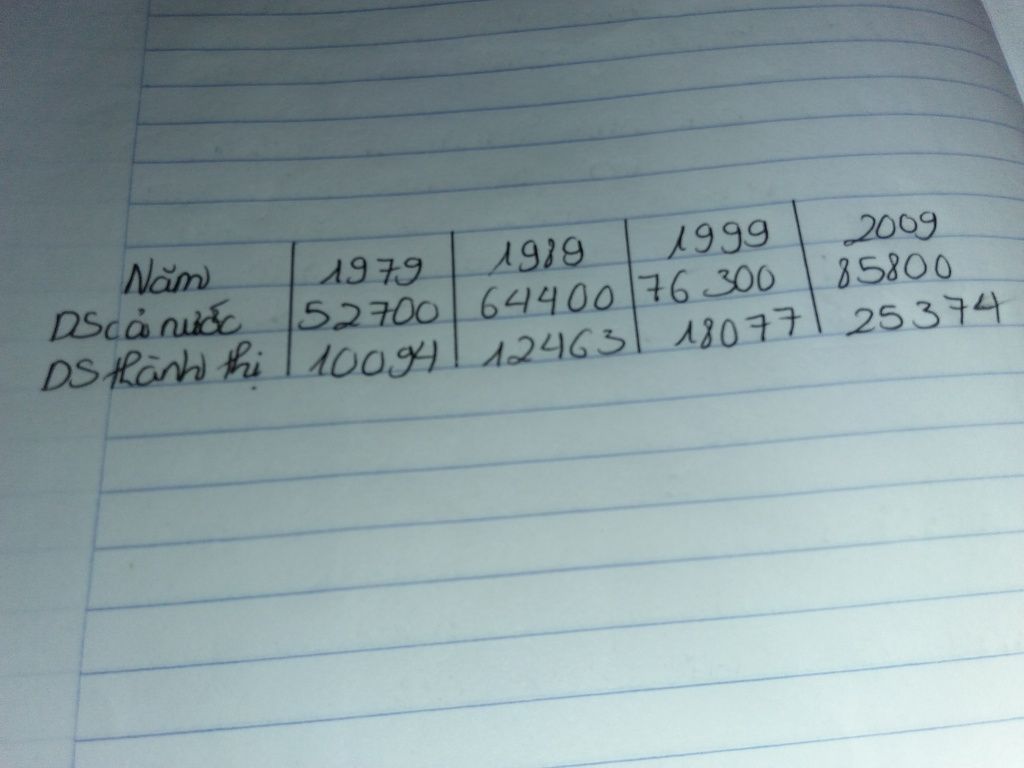 Năm 1979 1989 1999 2009
DS cả nước 52700 64400 76300 85800
DS thành thị 10094 12463 18077 25374